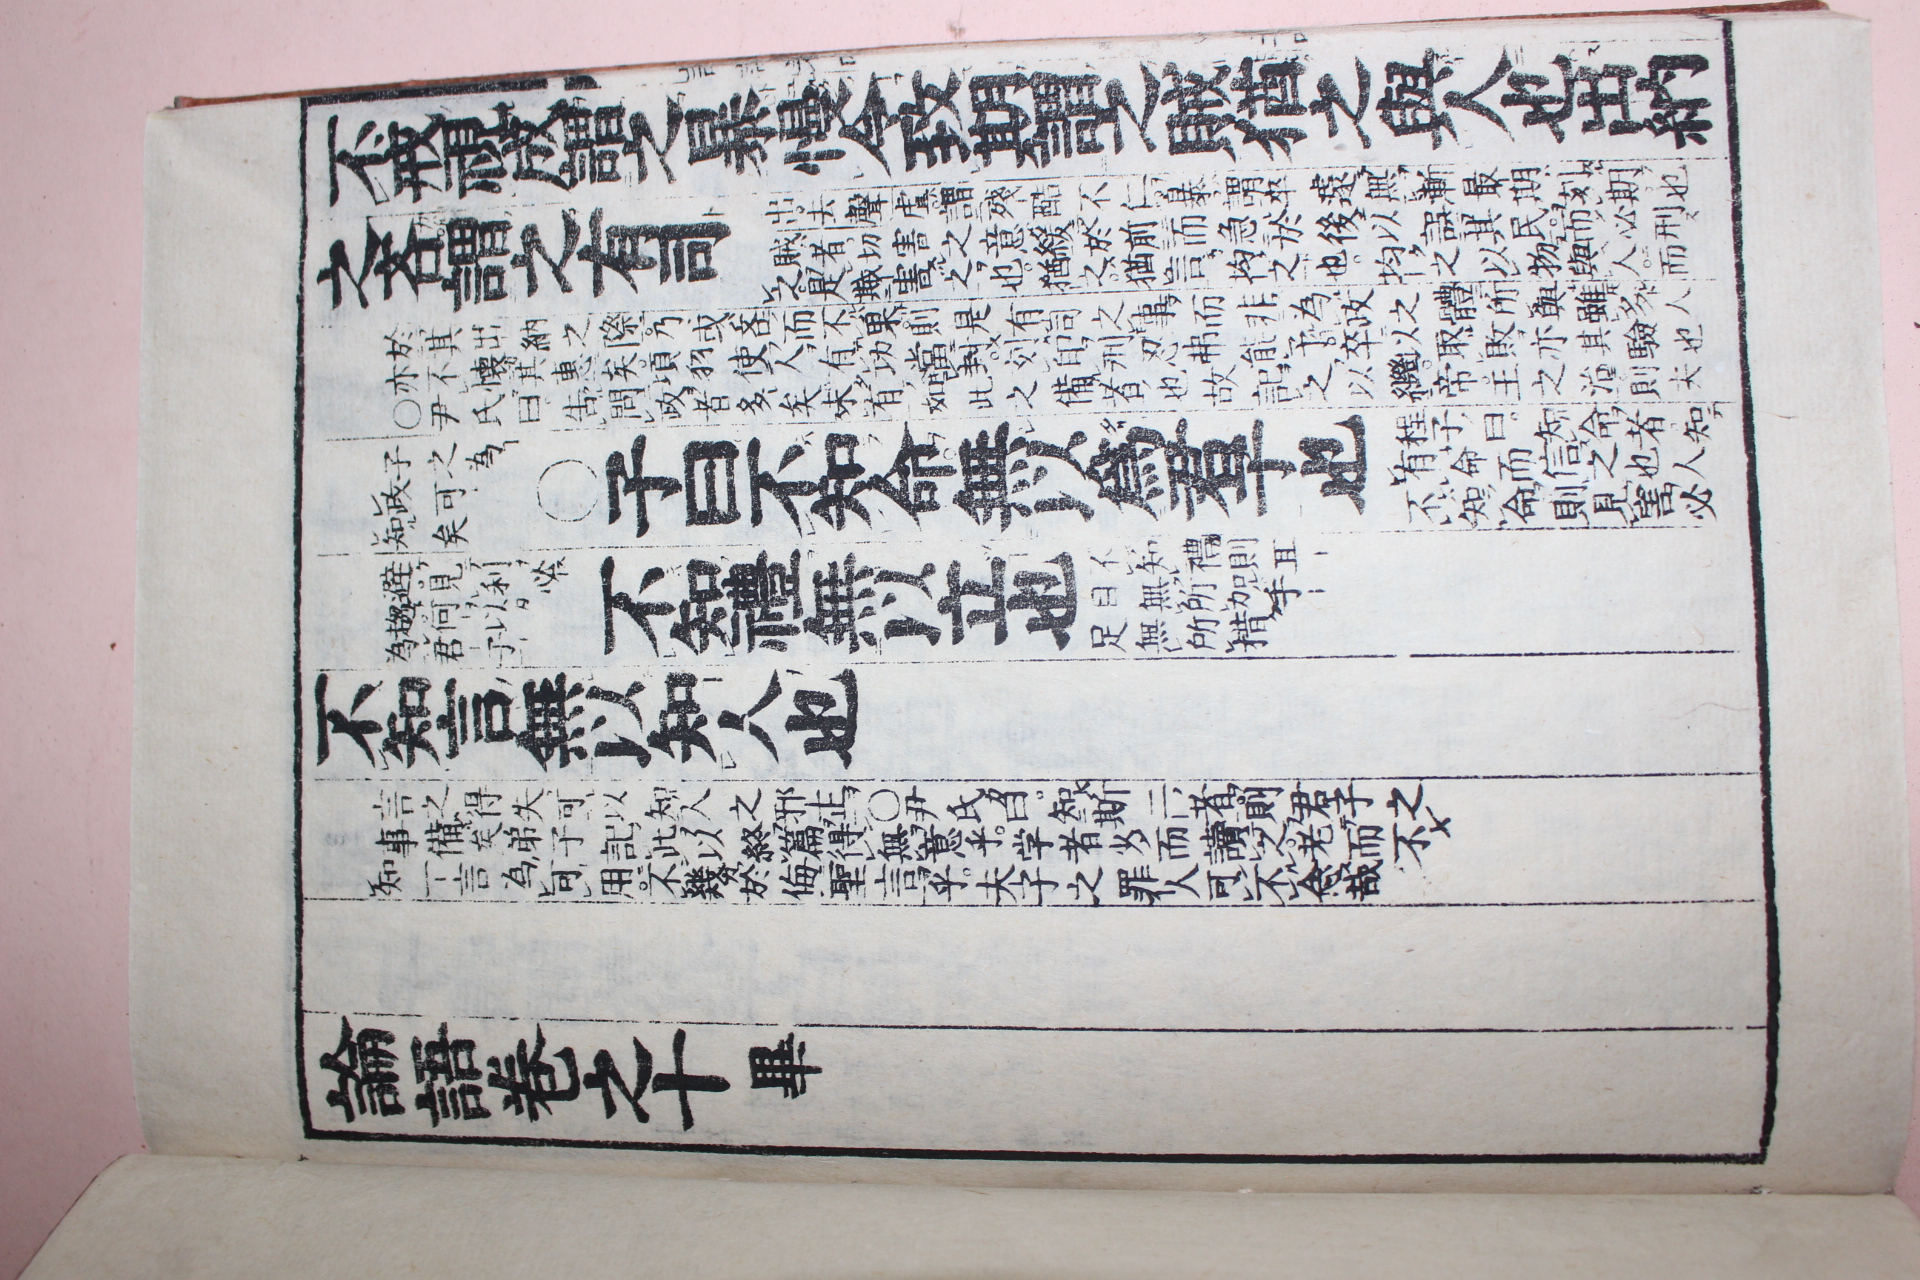 不戒視成謂之暴慢令致期謂之賊猶之與人也出納
之吝謂之有司
出去聲虐謂殘酷不仁暴謂卒遽無漸致期刻期也
賊者切害之意緩於前而急於後以誤其民而必刑
之是賊害之也猶之猶言均之也均之以物與人而
於其出納之際乃或吝而不果則是有司之事而非為政之體所與雖多人
亦不懷其惠矣項羽使人有功當封刻印刓忍弗能予卒以取敗亦其驗也
〇尹氏曰告問政者多矣未有如此之備者也故記之以繼帝王之治則夫
子之為
政可
知矣
〇子曰不知命無以爲君子也
程子曰知命者知
有命而信之也人
不知命則見害必
避見利必
趨何以
為君子
不知禮無以立也
不知禮則耳
目無所加手
足無所措
不知言無以知人也
言之得失可以知人之邪正〇尹氏曰知斯三者則君子之
事備矣弟子記此以終篇得無意乎学者少而讀之老而不
知一言為可用不幾於侮聖言乎夫子之罪人可不念哉
論語卷之十 畢